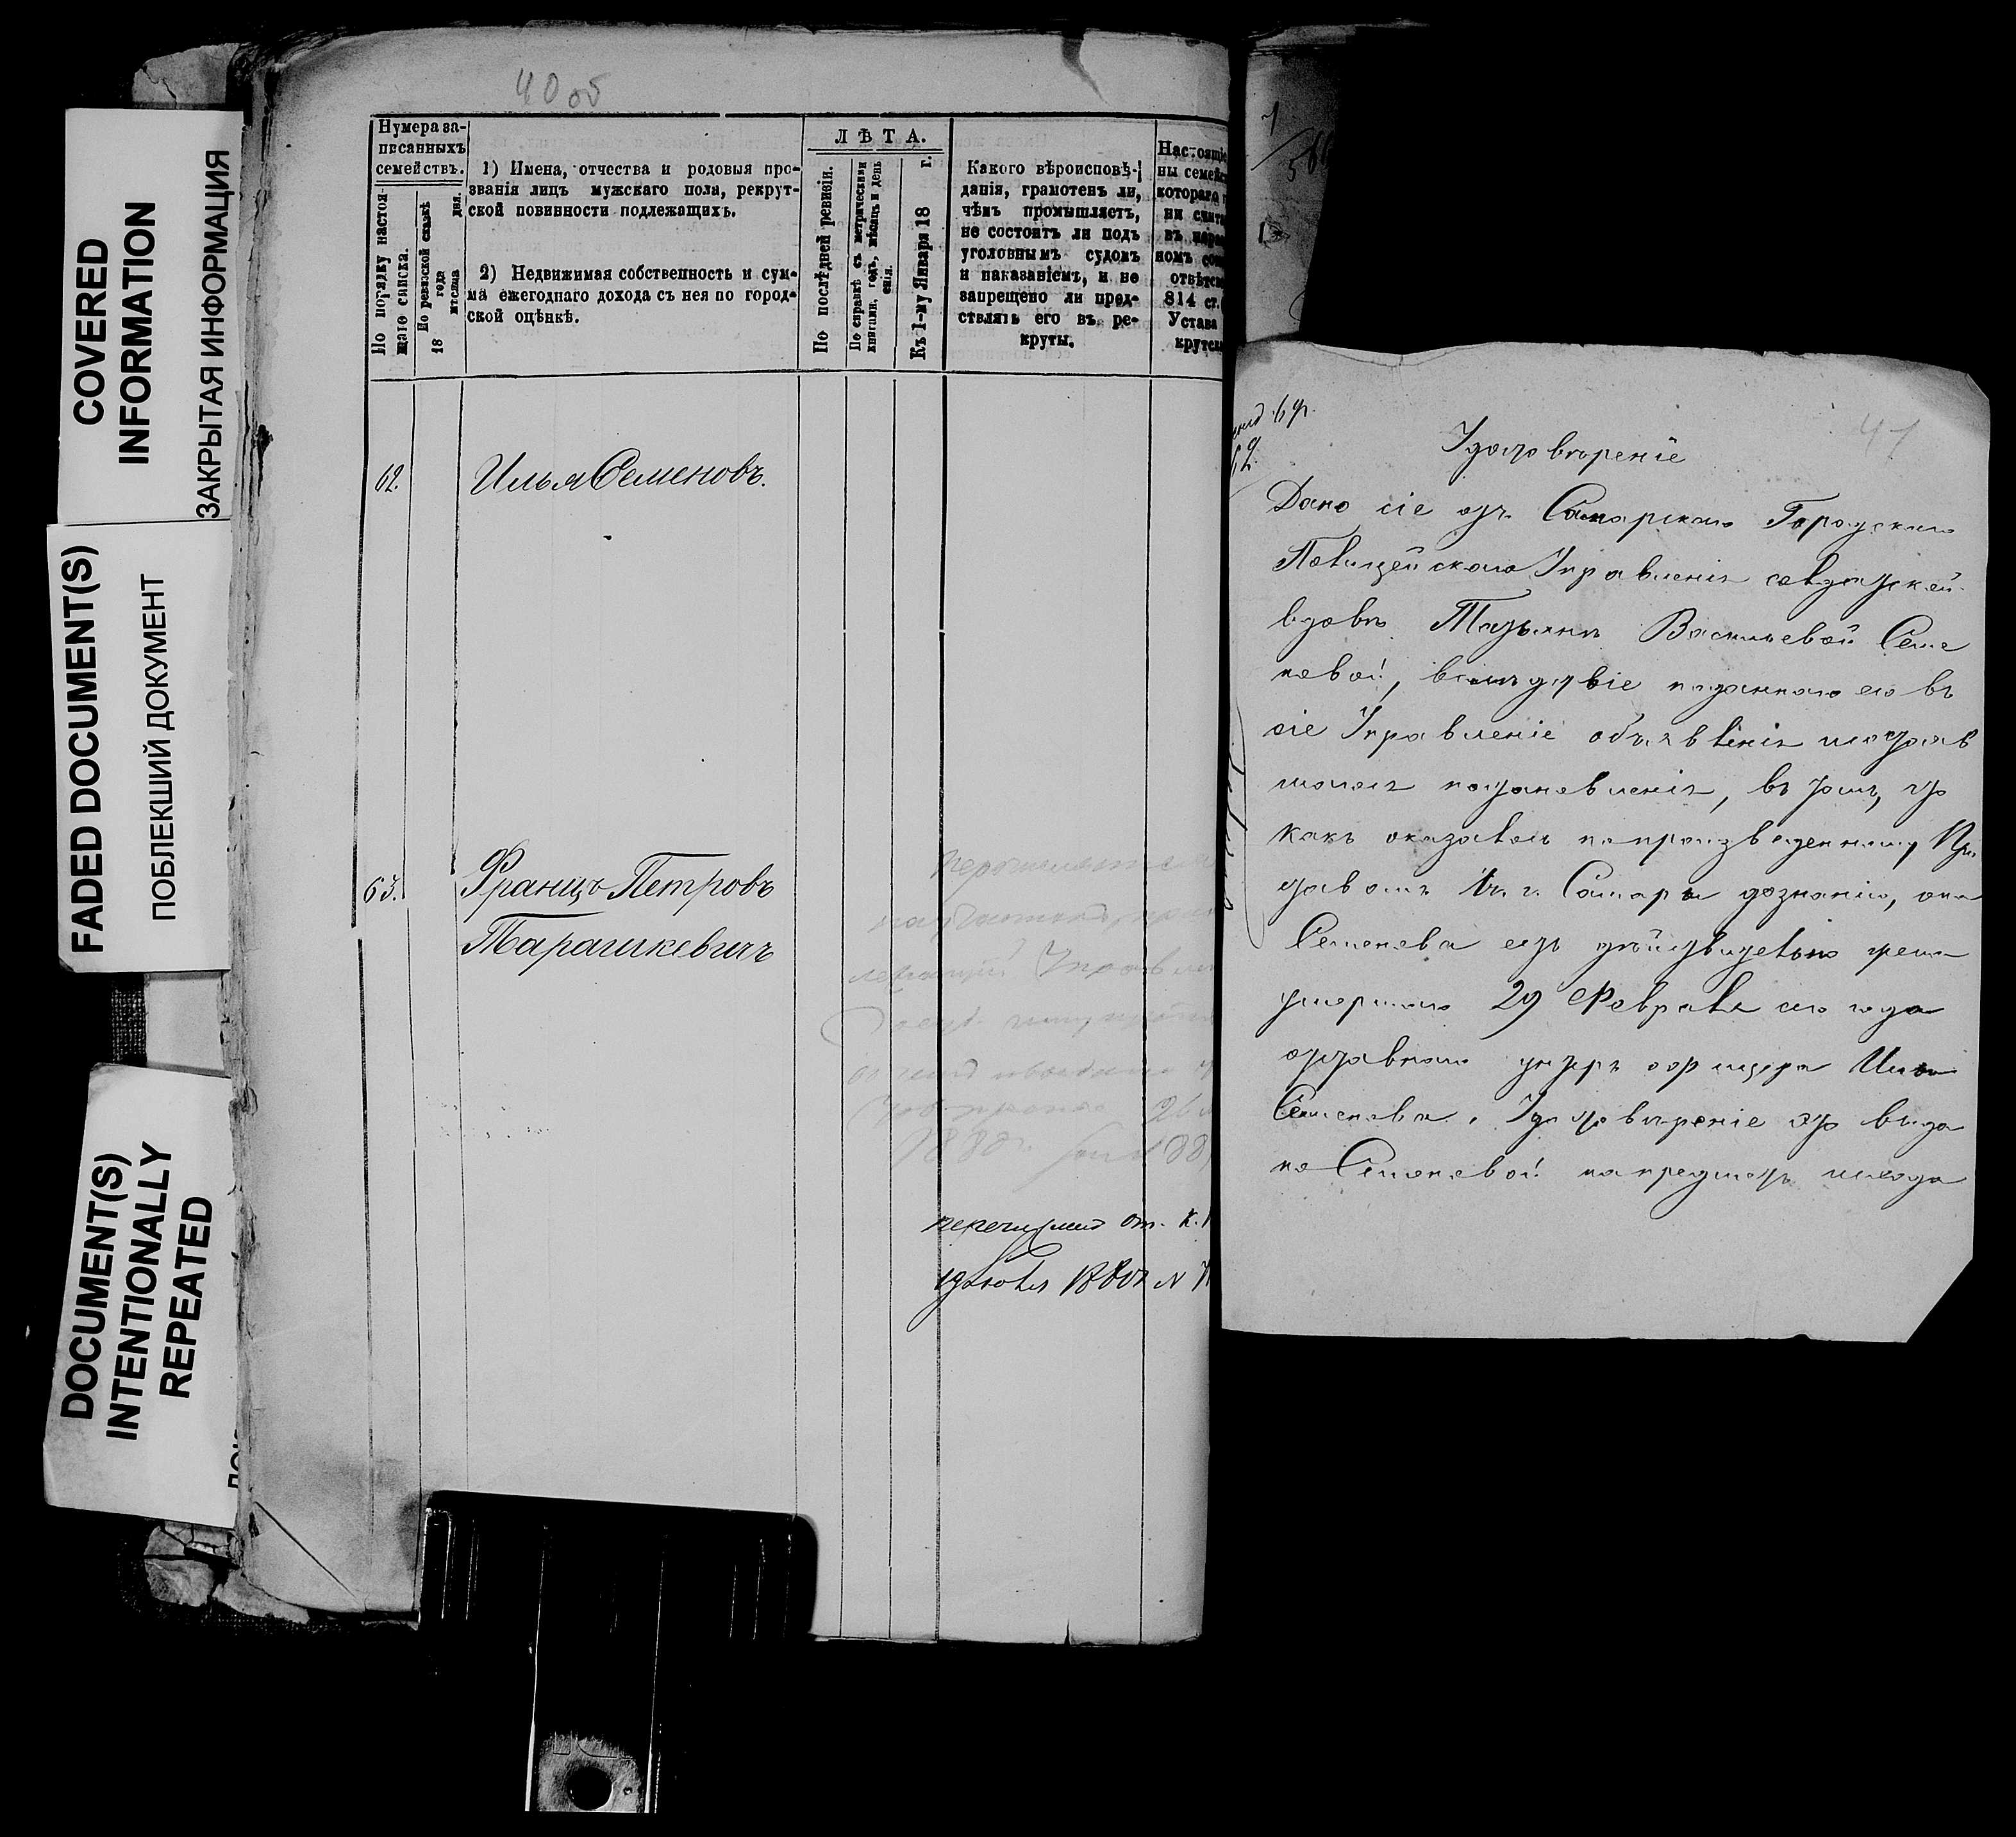 COVERED
INFORMATION
ЗАКРЫТАЯ ИНФОРМАЦИЯ
FADED DOCUMENT(S)
ПОБЛЕКШИЙ ДОКУМЕНТ
DOCUMENT(S)
INTENTIONALLY
REPEATED
40 об
Нумера за-
писанныхъ
семействъ.
По порядку настоя-
щаго списка.
По ревизской сказкѣ
18 года
мѣсяца дня.
1) Имена, отчества и родовыя про-
званія лицъ мужскаго пола, рекрут-
ской повинности подлежащихъ.
2) Недвижимая собственность и сум-
ма ежегоднаго дохода съ нея по город-
ской оцѣнкѣ.
ЛѢТА.
По послѣдней ревизіи.
По справкѣ съ метрическими
книгами, годъ, мѣсяцъ и день
Къ 1-му Января 18 г.
Какого вѣроисповѣ-
данія, грамотенъ ли,
чѣмъ промышляетъ,
не состоитъ ли подъ
уголовнымъ судомъ
и наказаніемъ, и не
запрещено ли пред-
ствлять его въ ре-
круты.
Настоящі
ны семей
котораго
ни счита
въ
номъ
отвѣтс
814 ст.
Устава
крутск
62. Илья Семеновъ.
63. Францъ Петровъ
Тарашкевичъ
перечислен от. К.
19 Июля 1880 г N
41
Удостовѣреніе
Дано сіе отъ Самарскаго Городскаго
Полицейскаго Управленія солдатской
вдовѣ Татьянѣ Васильевой Семе
новой, вслѣдствіе поданнаго ею въ
сіе Управленіе объявленія и состояв
шагося постановленія, въ томъ, что
какъ оказалось по произведенному При
ставомъ г. Самары дознанію, она
Семенова есть дѣйствительно жена
умершаго 29 Февраля сего года
отставнаго унтеръ офицера Ильи
Семенова. Удостовѣреніе это выда
но Семеновой на предметъ исхода